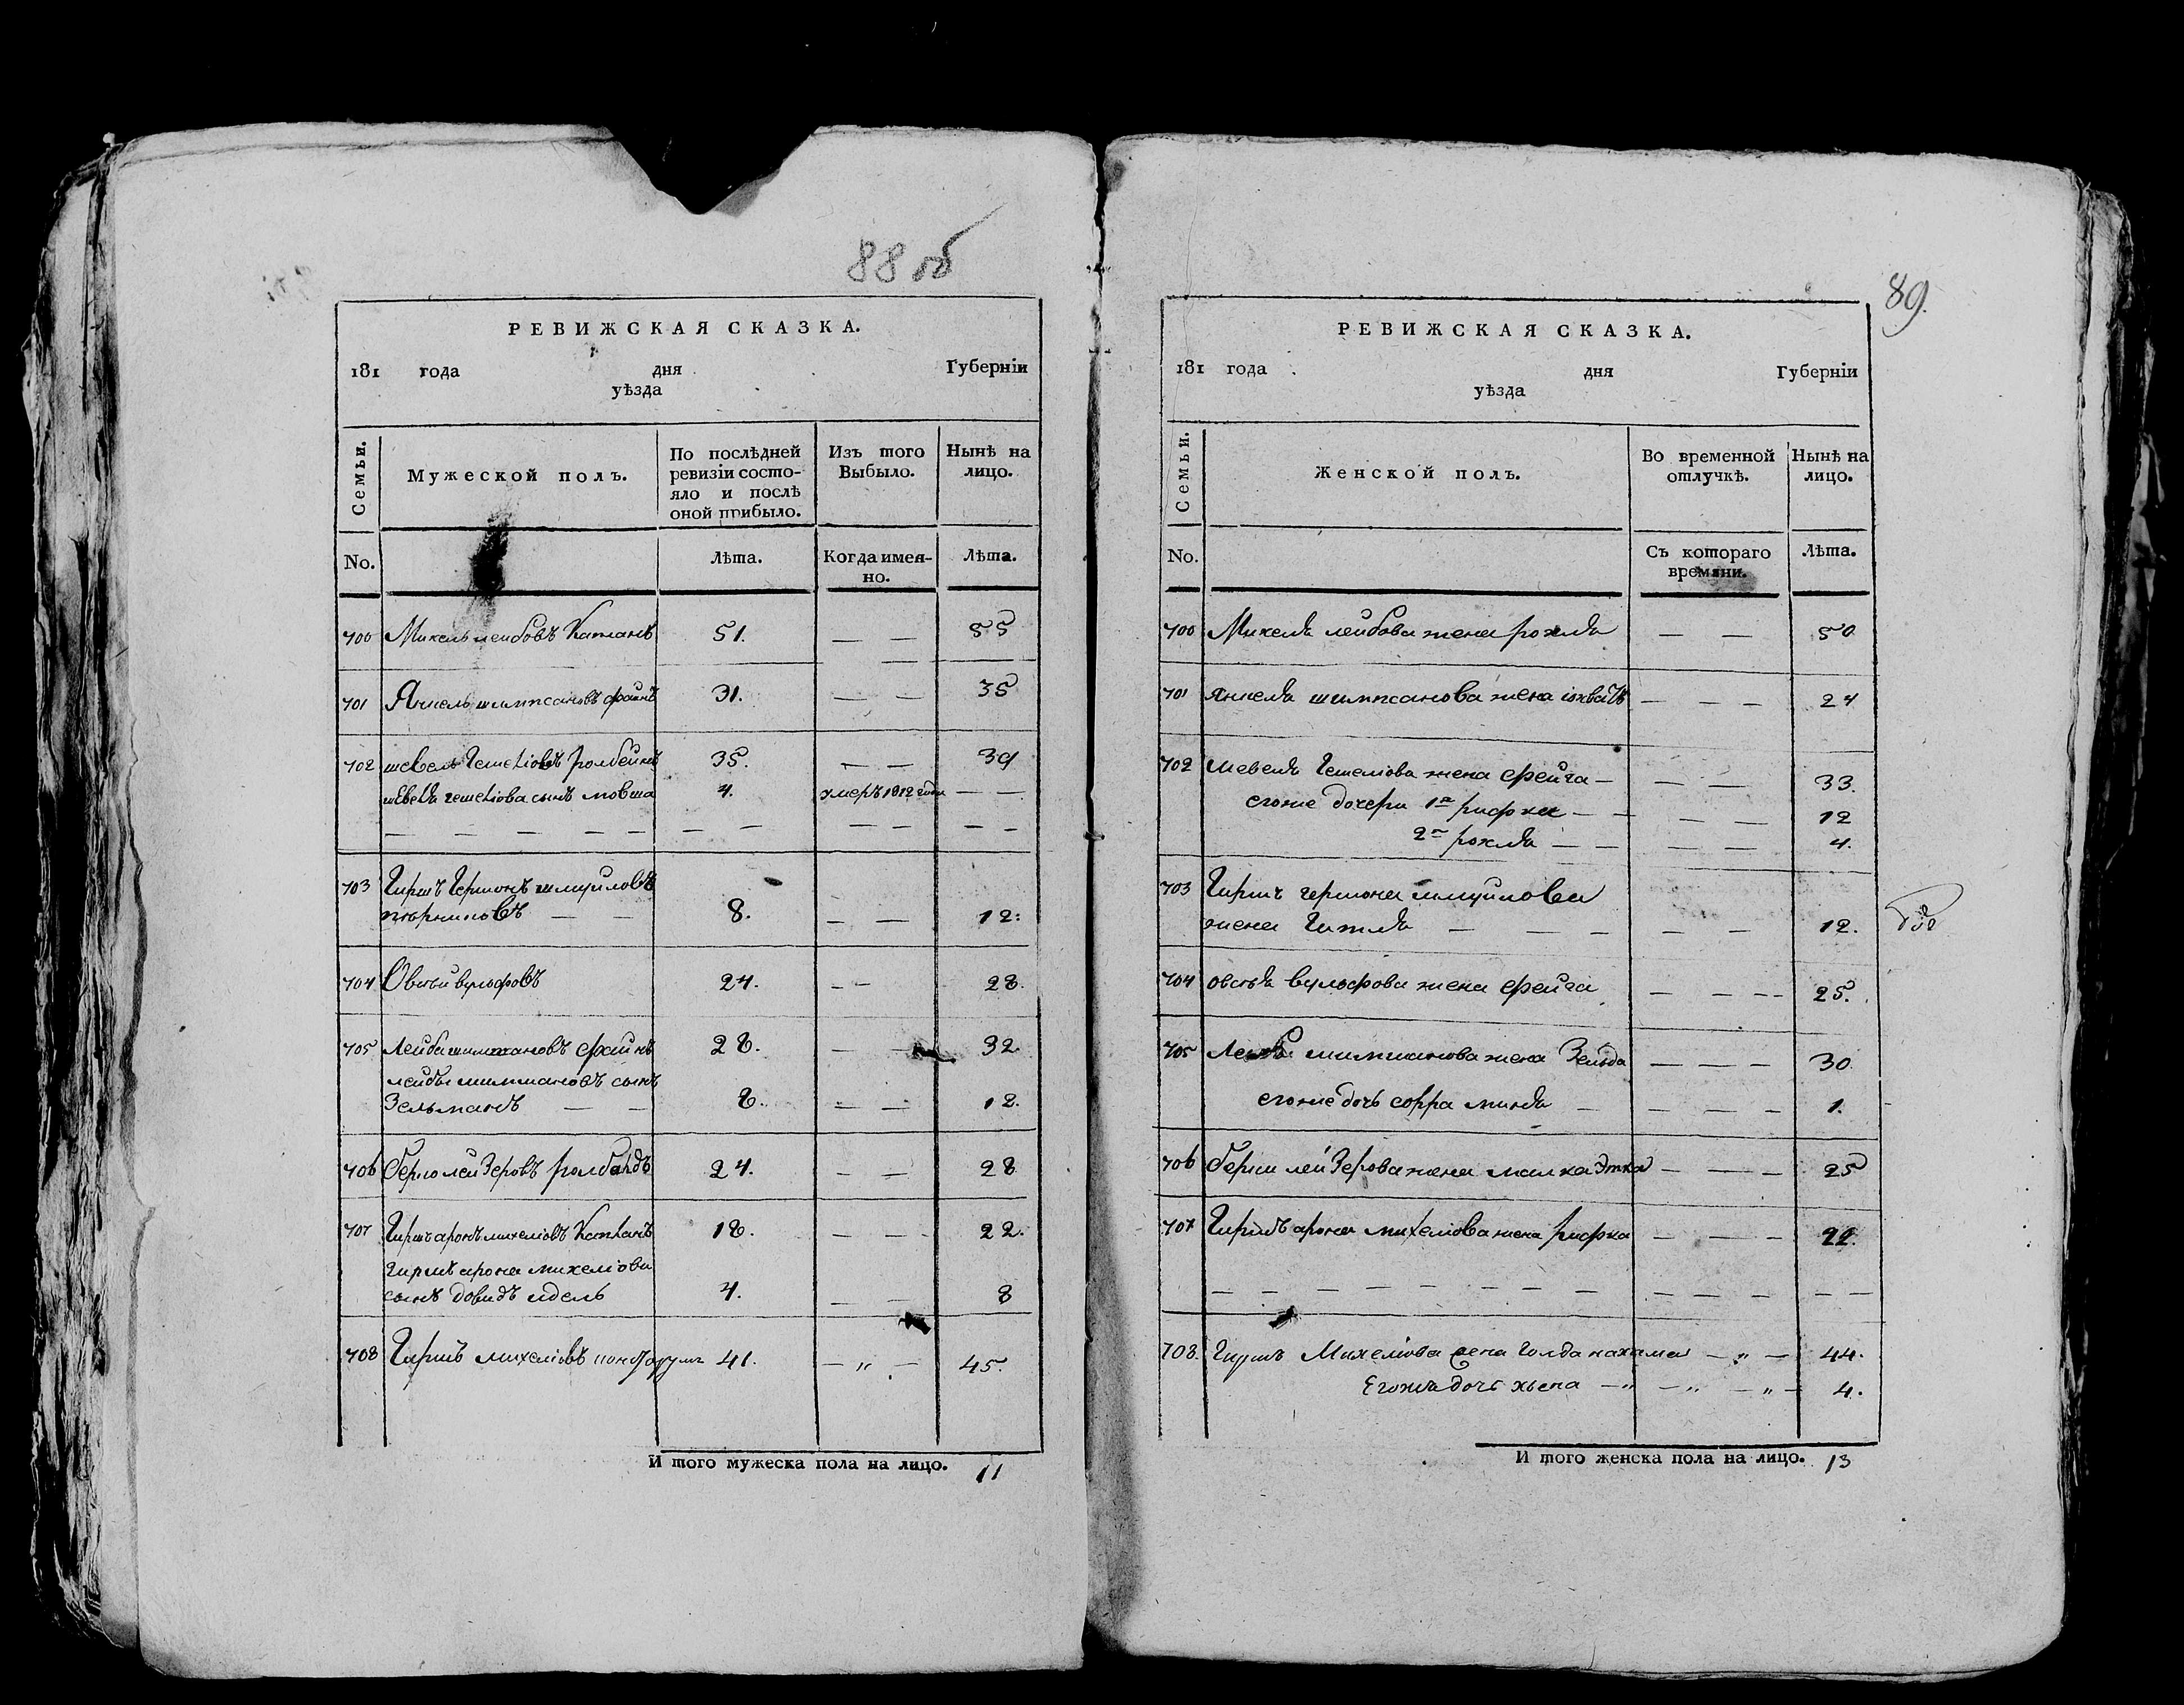 88 об
РЕВИЖСКАЯ СКАЗКА.
181 года дня Губерніи
уѣзда
Семьи.
Мужеской полъ.
По послѣдней ревизіи состо-
яло и послѣ
оной прибыло.
Изъ того
Выбыло.
Нынѣ на
лицо.
No.
Лѣта.
Когда имен-
но.
Лѣта.
700 Михель леибовъ Капланъ 51. — — 55
701 Янкель шимхановъ фаинъ 31. — — 35
702 шевель Гешеліовъ 35. — — 39
шевеля гешеліова сынъ мовша 4. умеръ 1812 года — —
— — — — — — — — — — —
703 Гиршъ Гершонъ шмуиловъ
— — 8. — — 12.
704 Овсѣй вульфовъ 24. — — 28.
705 Лейба шимхановъ фаинъ 28. — — 32
лейбы шимхановъ сынъ
Зельманъ — — 8. — — 12.
706 берко лейзеровъ 24. — — 28
707 Гиршъ аронъ михеліовъ Капланъ 18. — — — 22.
гиршъ арона михеліова
сынъ довидъ идель 4. — — 8
708 Гиршъ михеліовъ 41. — „ — 45.
И того мужеска пола на лицо. 11
89.
РЕВИЖСКАЯ СКАЗКА.
181 года дня Губерніи
уѣзда
Семьи.
Женской полъ.
Во временной
отлучкѣ.
Нынѣ на
лицо.
No.
Съ котораго
времяни.
Лѣта.
700 Михеля леибова жена рохля — — 50
701 янкеля шимханова жена — — — 24
702 Шевеля Гешеліова жена фейга — — — 33.
егоже дочери 1я рифка — — — — 12
2я рохля — — — — 4.
703 Гиршъ гершона шмуилова
жена Гитля — — — — — 12.
704 овсѣя вульфова жена фейга — — — — 25.
705 Лейбы шимханова жена Зельда — — — 30.
егоже дочь сорра миндя — — — — 1.
706 берки лейзерова жена малка Этка — — — 25
707 Гиршъ арона михеліова жена рифка — — — 22.
— — — — — — — — — — — — —
708. Гиршъ Михеліова жена голда нахама — „ — 44.
Егожъ дочь хьена — „ — „ — „ — 4.
И того женска пола на лицо. 13